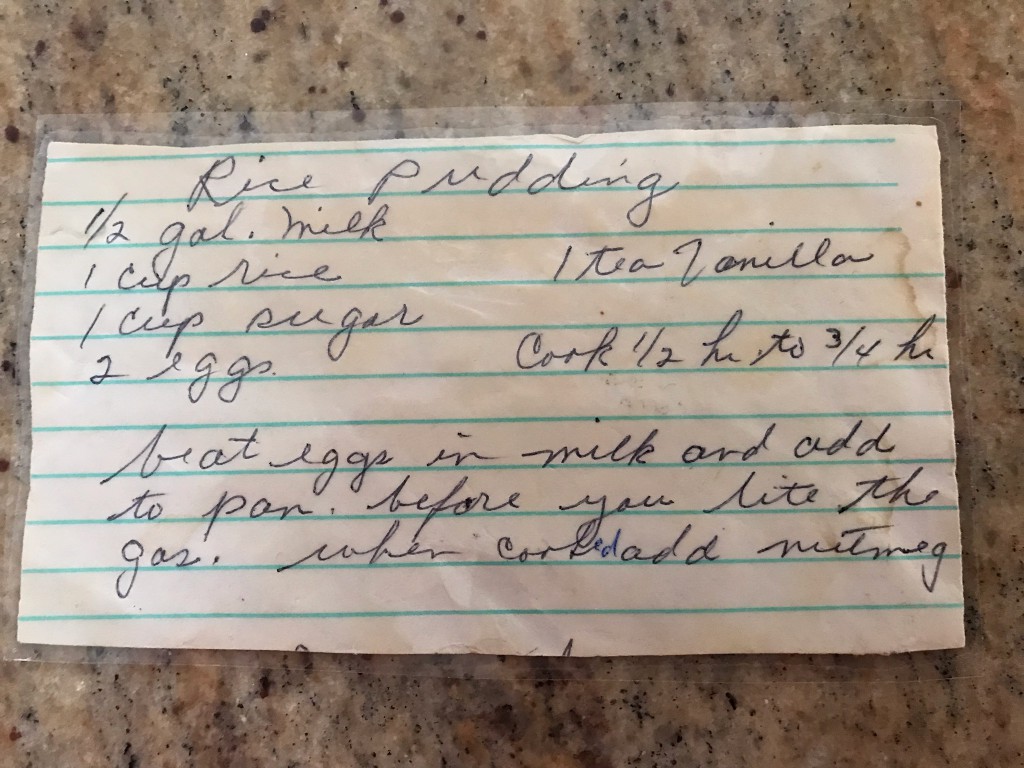 Rice Pudding
1/2 gal. milk
1 cup rice
1 tea Vanilla
1 cup sugar
2 eggs.
Cook 1/2 hr to 3/4 hr
beat eggs in milk and add
to pan. before you lite the
gas. when cooked add nutmeg